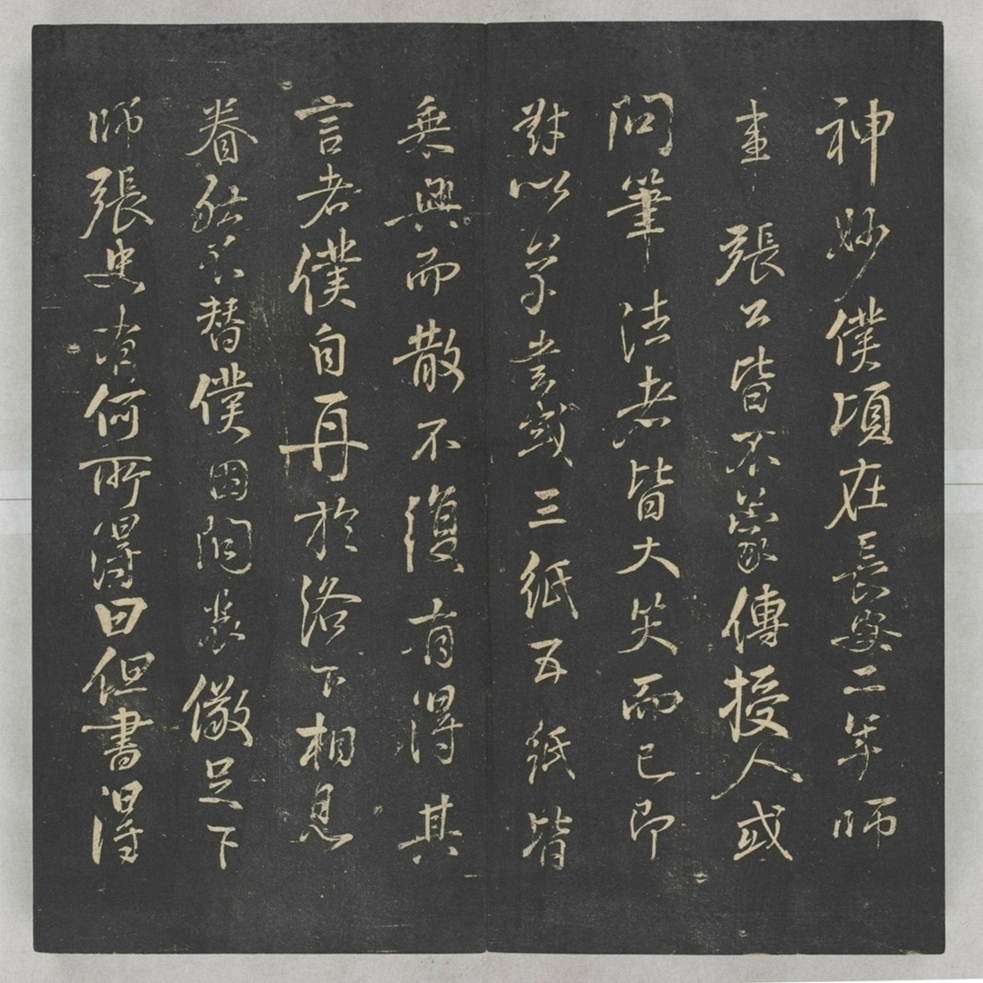 神妙僕頃在長安二年師
事張公皆不蒙傳授人或
問筆法者皆大笑而已即
對以草書或三紙五紙皆
乘興而散不復有得其
言者僕自再於洛下相見
眷然不替僕因問裴儆足下
師張史有何所得曰但書得